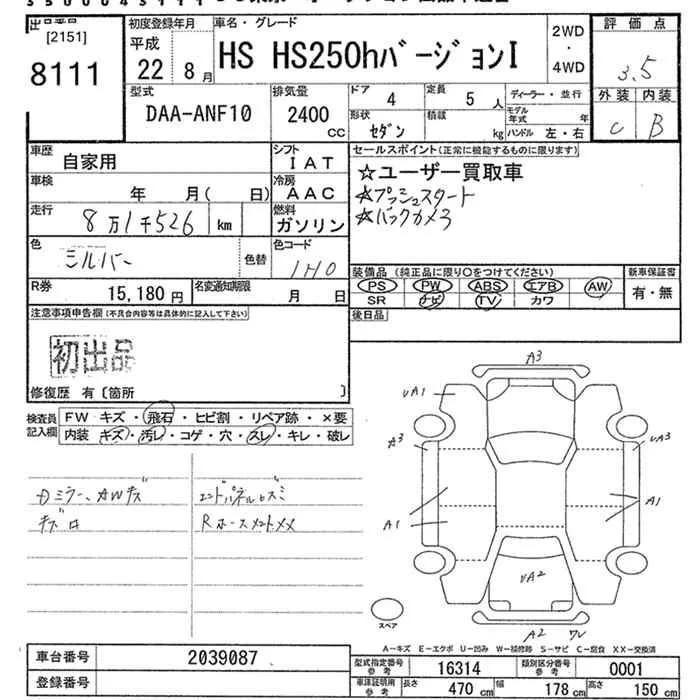 出品番号
[2151]
8111
初度登録年月
平成
22 8月
車名・グレード
HS HS250hバージョンI
2WD
・
4WD
評価点
3.5
型式
DAA-ANF10
排気量
2400
CC
ドア
4
定員
5人
形状
セダン
積載
kg
ディーラー・並行
モデル年式 年
ハンドル 左・右
外装 内装
C B
車歴
自家用
シフト
I A T
車検
年 月( 日)
冷房
A A C
走行
8万1千526 km
燃料
ガソリン
色
シルバー
色替
色コード
1H0
R券
15,180円
名変通知期限
月 日
セールスポイント(正常に機能するものに限ります)
☆ユーザー買取車
☆プッシュスタート
☆バックカメラ
装備品 (純正品に限り○をつけてください)
PS PW ABS エアB AW
SR ナビ TV カワ
新車保証書
有・無
後日品
注意事項申告欄(不具合内容等は具体的に記入して下さい)
初出品
修復歴 有〔箇所 〕
検査員記入欄
FW キズ・飛石・ヒビ割・リペア跡・×要
内装 キズ・汚レ・コゲ・穴・スレ・キレ・破レ
Dミラー、AWキズ
キズ
エンドパネルヒズミ
Rホースメントメメ
A3
UA1
A3
UA3
A1
A1
UA2
A2
スペア
A-キズ E-エクボ U-凹み W-補修跡 S-サビ C-腐食 XX-交換済
車台番号
2039087
登録番号
型式指定番号 参考
16314
類別区分番号 参考
0001
車庫証明用 参考
長さ 470cm
幅 178cm
高さ 150cm